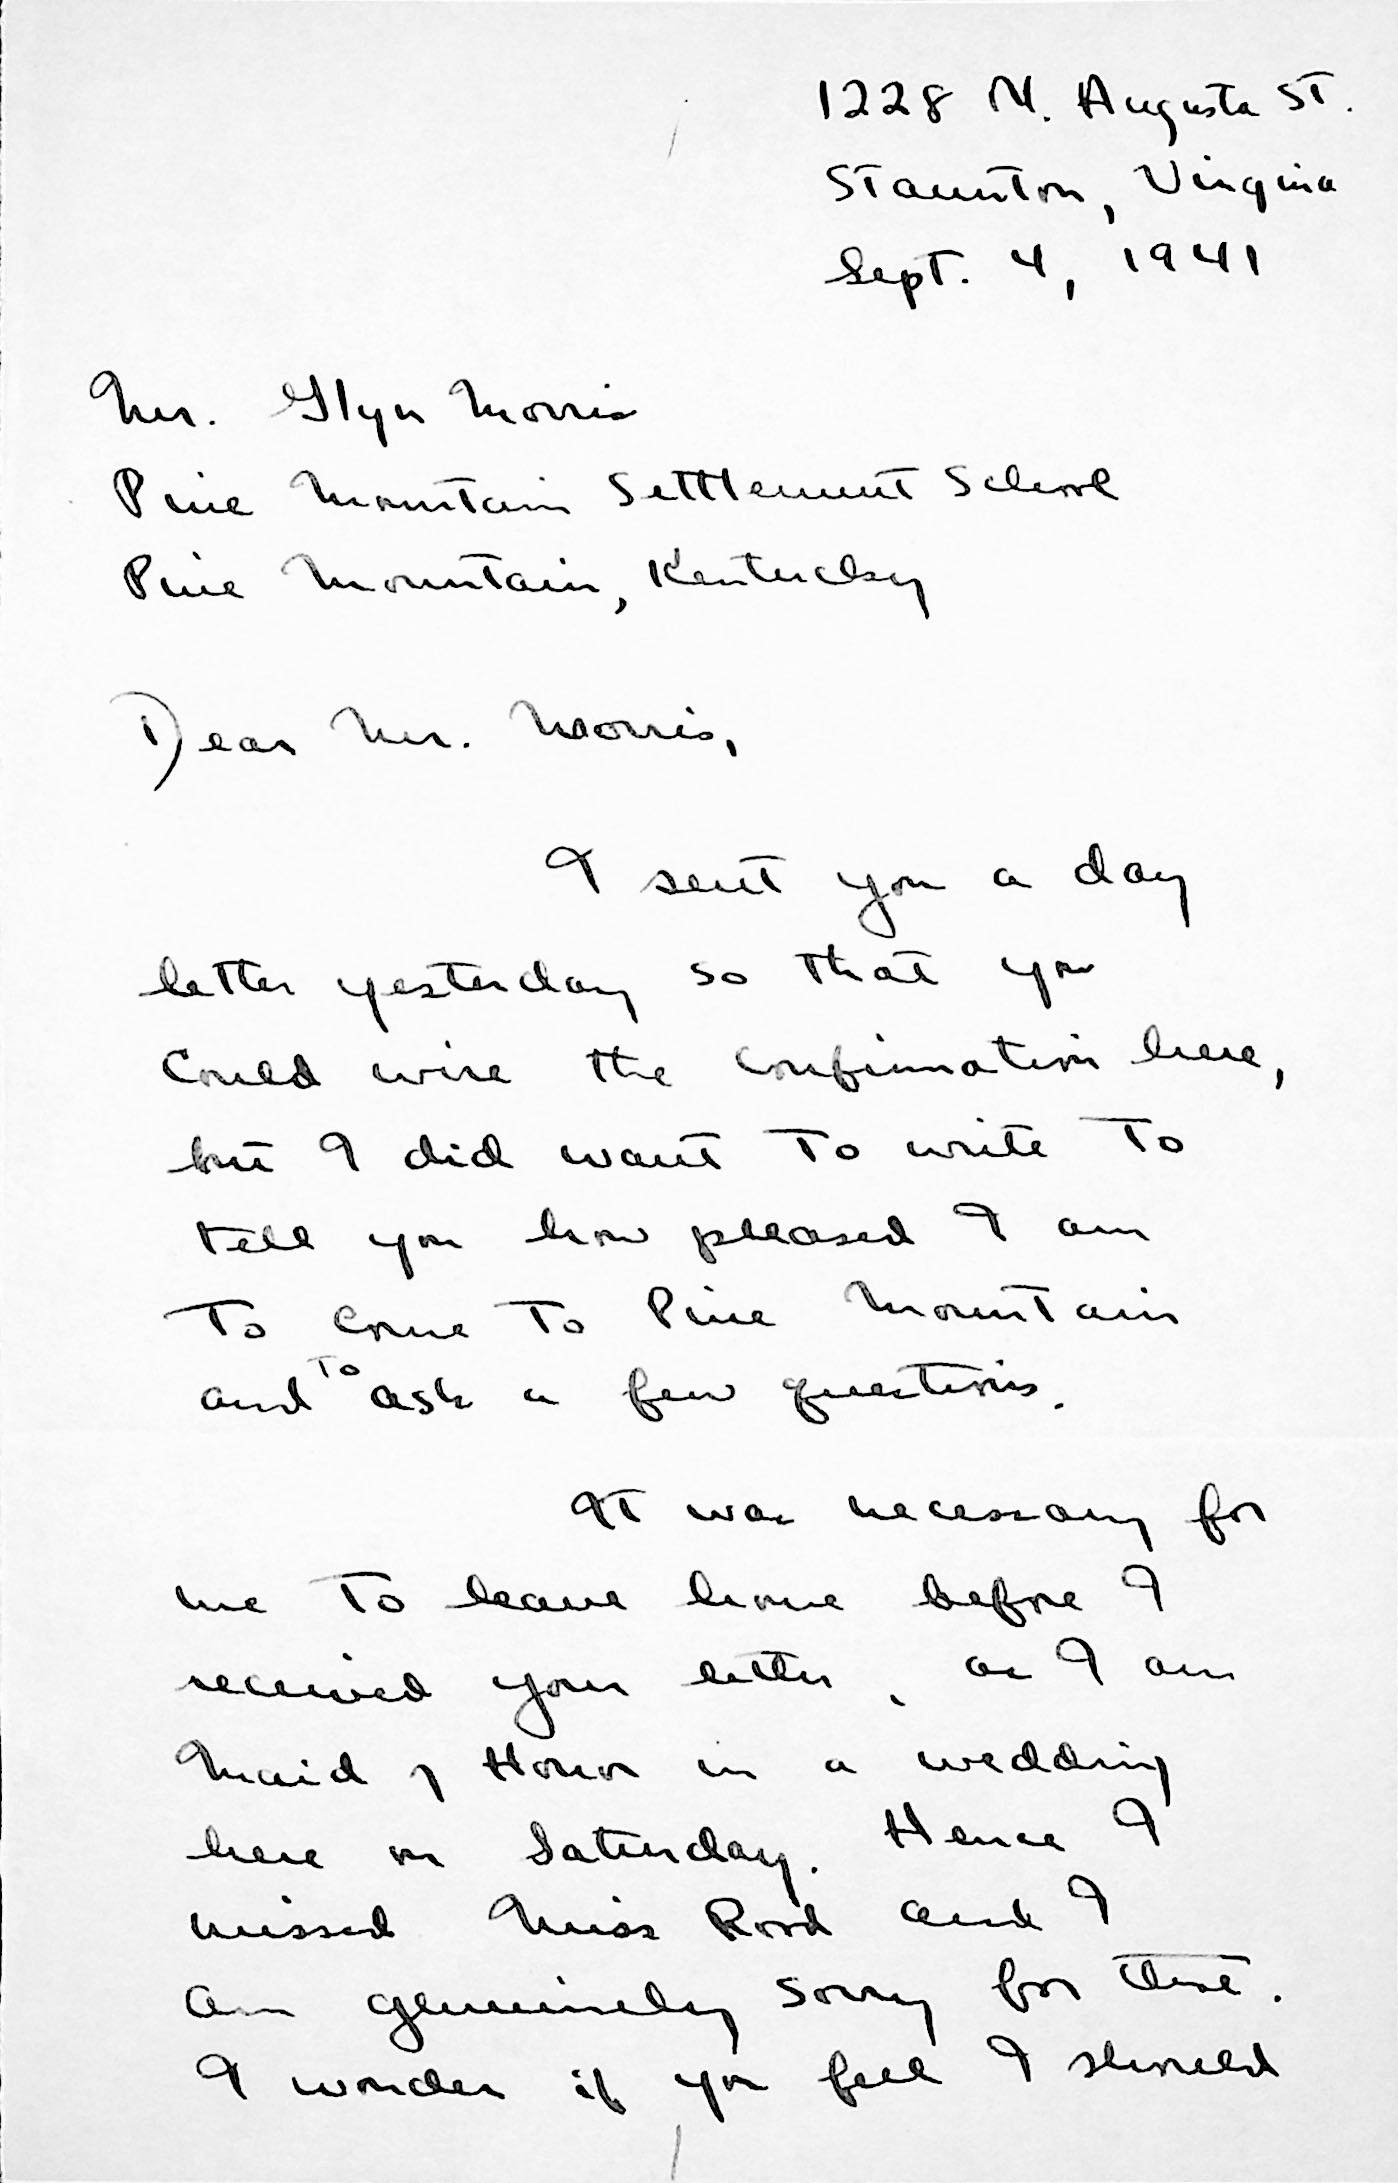 1228 N. Augusta St.
Staunton, Virginia
Sept. 4, 1941
Mr. Glyn Morris
Pine Mountain Settlement School
Pine Mountain, Kentucky
Dear Mr. Morris,
I sent you a day
letter yesterday so that you
could wire the confirmation here,
but I did want to write to
tell you how pleased I am
to come to Pine Mountain
and to ask a few questions.
It was necessary for
me to leave home before I
received your letter, as I am
Maid of Honor in a wedding
here on Saturday. Hence I
missed Miss Rood and I
am genuinely sorry for that.
I wonder if you feel I should